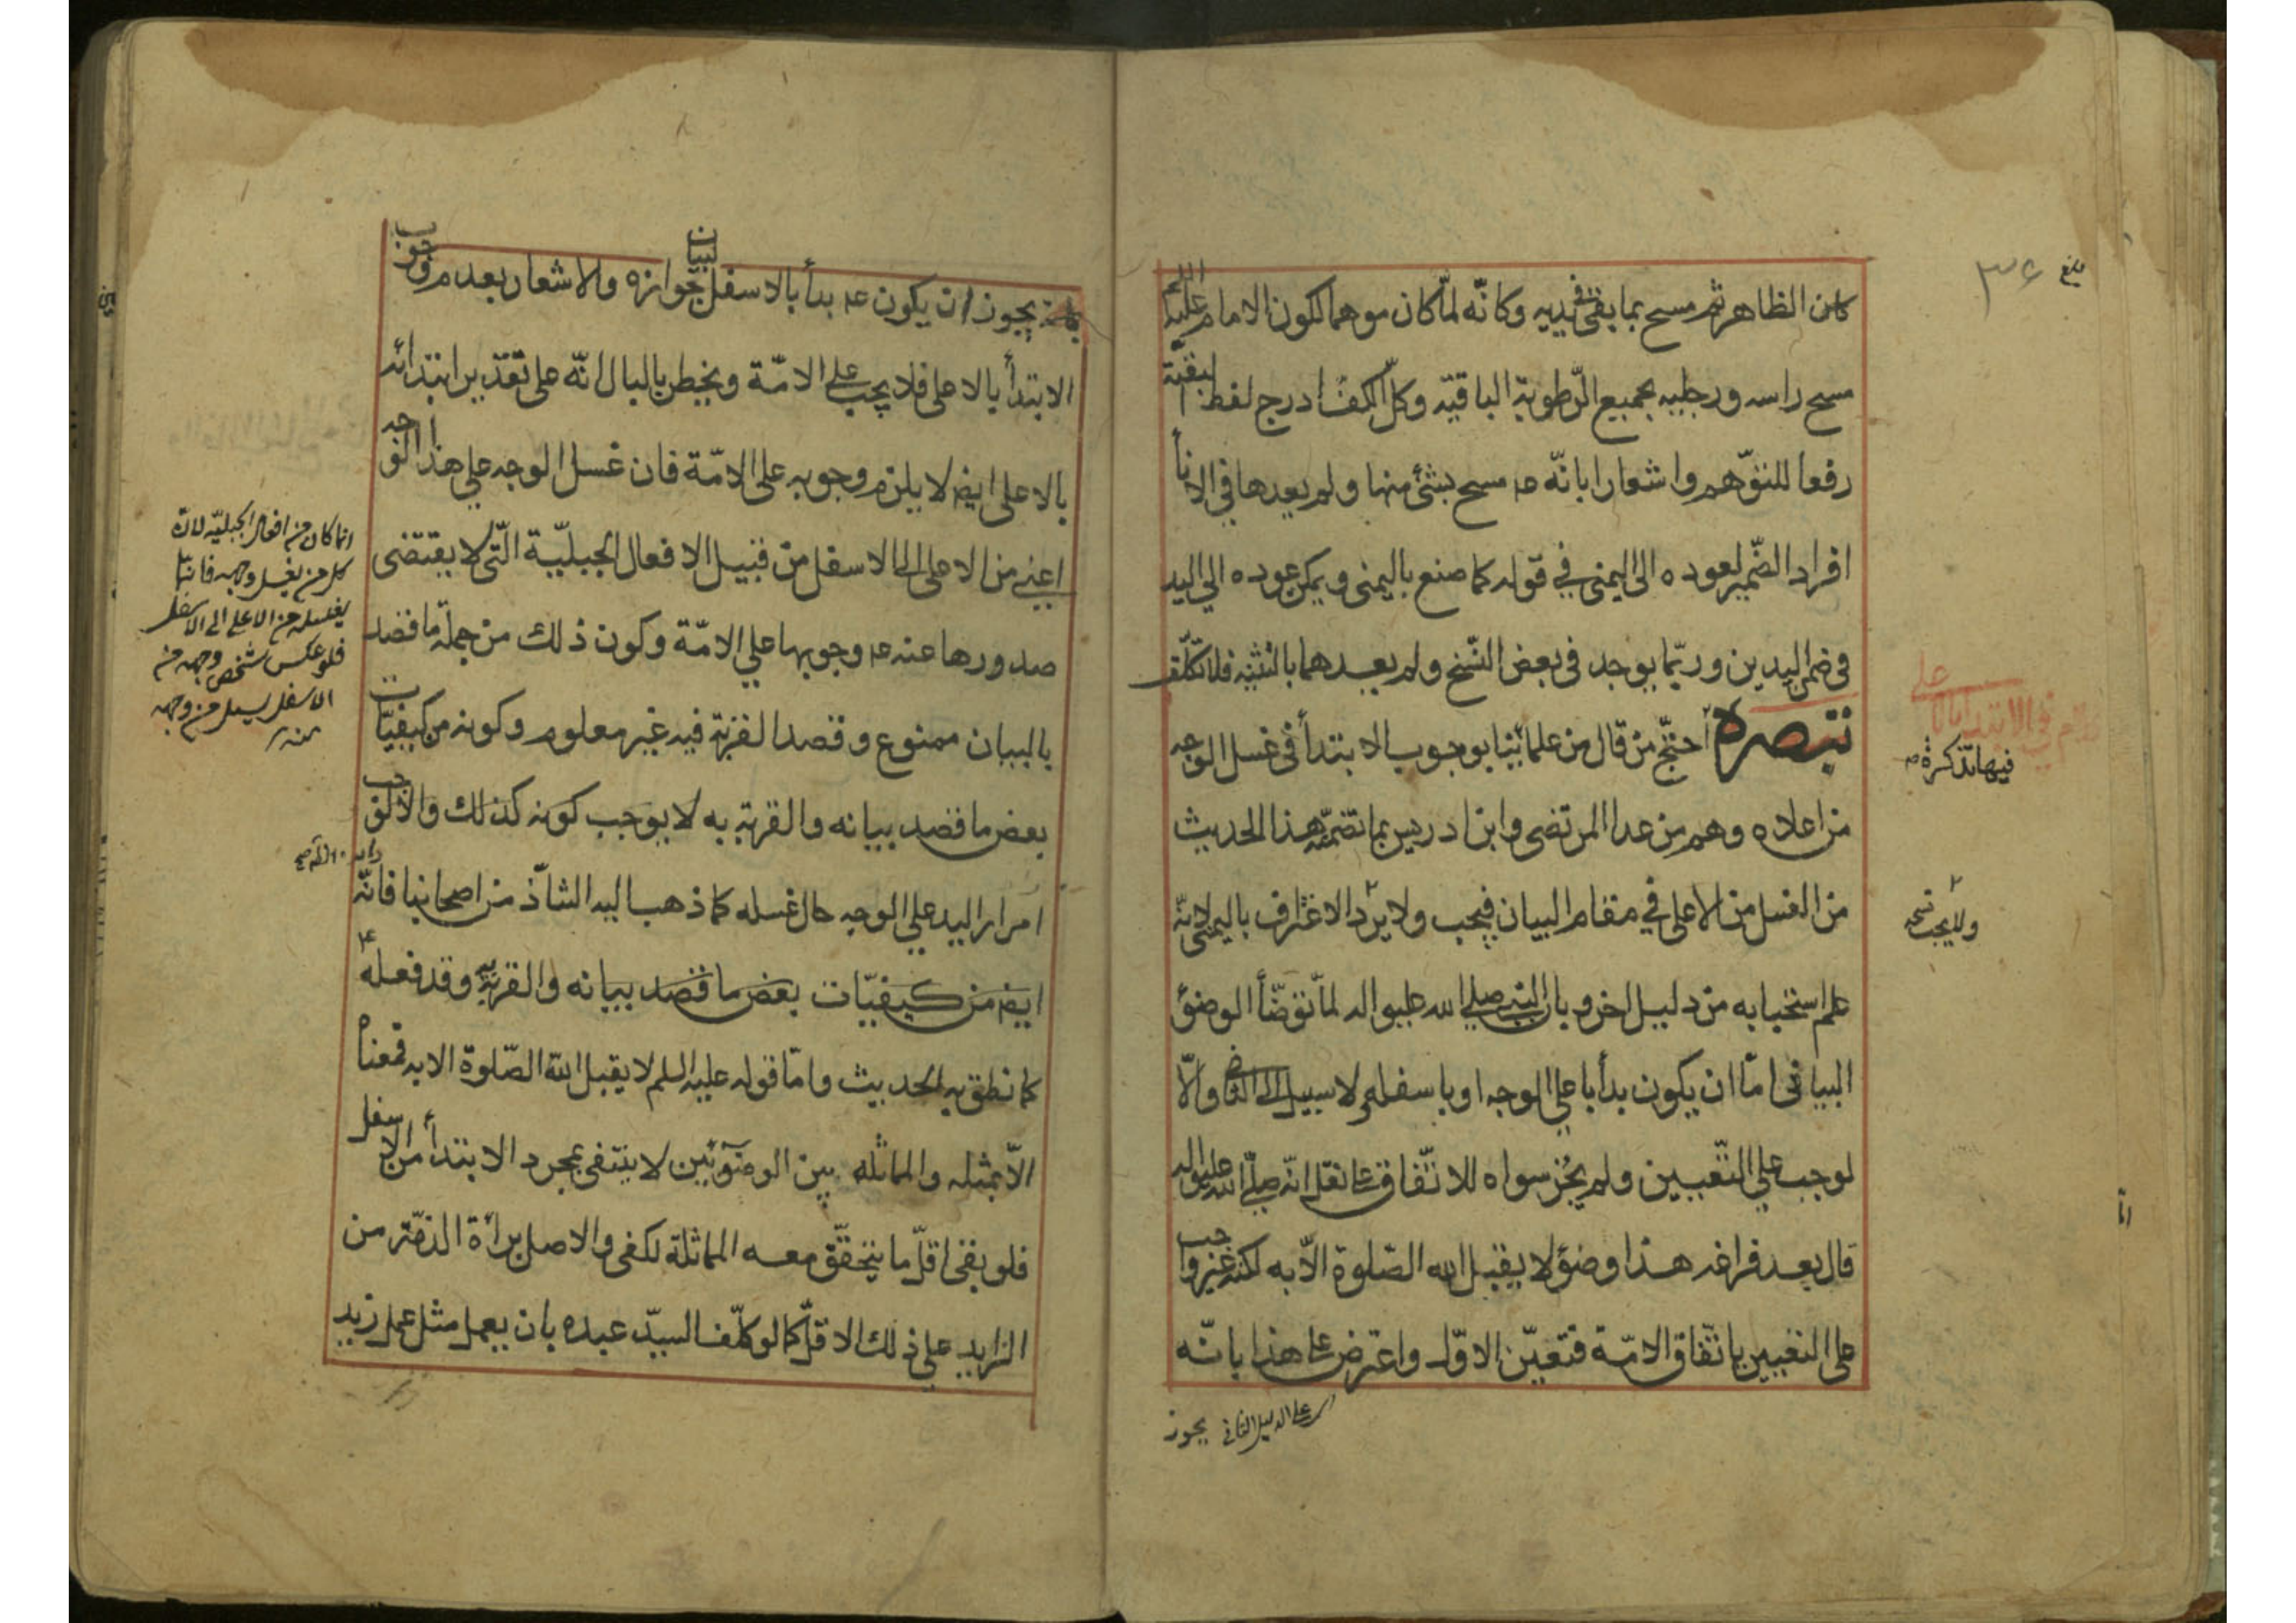 كان الظاهر ثم مسح بما بقى فى يديه وكانّه لمّا كان موهما لكون الامام عليه السلم
مسح راسه ورجليه بجميع الرّطوبة الباقيّه وكلّ الكفّ ادرج لفظ البقيّة
رفعا للتوّهم واشعارا بانّه ع مسح بشئ منها ولم يعدها فى الانأ
افراد الضّمير لعوده الى اليمنى في قوله كما صنع باليمنى ويمكن عوده الى اليد
فى ضمن اليدين وربّما يوجد فى بعض النّسخ ولم يعدهما بالتثنيه فلا تكلّف
تبصرة احتجّ من قال من علمائنا بوجوب الابتدأ فى غسل الوجه
من اعلاه وهم من عدا المرتضى وابن ادريس بما تضمّنه هذا الحديث
من الغسل من الاعلى في مقام البيان فيجب ولا يرد الاغتراف باليمنى لانّه
علم استحبابه من دليل اخر و بان النبى صلى الله عليه واله لمّا توضّأ الوضؤ
البيانى امّا ان يكون بدأ باعلي الوجه او باسفله ولا سبيل الى الثانى والّا
لوجب على التّعيين ولم يجُز سواه للاتّفاق على نقل انّه صلّى الله عليه واله
قال بعد فراغه هذا وضؤ لا يقبل الله الصّلوة الّا به لكنّه غير واجب
على التعيين باتّفاق الامّة فتعيّن الاوّل واعترض على هذا بانّه
ى على الدليل الثانى
يجوز
بلغ
٣٦
فيها تذكرة
ولا يجب نسخه
يجوز ان يكون ع بدأ بالاسفل لبيان جوازه والاشعار بعدم وجوب
الابتدأ بالاعلى فلا يجب على الامّة ويخطر بالبال انّه على تقدير ابتدائه
بالاعلى ايض لا يلزم وجوبه على الامّة فان غسل الوجه على هذا الوجه
اعنى من الاعلى الى الاسفل من قبيل الافعال الجبليّة الّتى لا يقتضى
صدورها عنه ع وجوبها على الامّة وكون ذلك من جملة ما قصد
بالبيان ممنوع وقصد القربة فيه غير معلوم وكونه من كيفيّات
بعض ما قصد بيانه والقربة به لا يوجب كونه كذلك والا لوجب
امرار اليد على الوجه حال غسله كما ذهب اليه الشاذّ من اصحابنا فانّه
ايض من كيفيّات بعض ما قصد بيانه والقربة به وقد فعله ع
كما نطق به الحديث وامّا قوله عليه السلم لا يقبل الله الصّلوة الا به فمعناه
الّا بمثله والمماثله بين الوضوئين لا ينتفى بمجرد الابتدأ من الاسفل
فلو بقى اقلّ ما يتحقّق معه المماثلة لكفى والاصل برأة الذمّة من
الزايد على ذلك الاقلّ كما لو كلّف السيّد عبده بان يعمل مثل عمل زيد
انما كان من افعال الجبليّه لان
كل من يغسل وجهه فانّما
يغسله من الاعلى الى الاسفل
فلو عكس شخص وجهه من
الاسفل يسيل من وجهه
منه